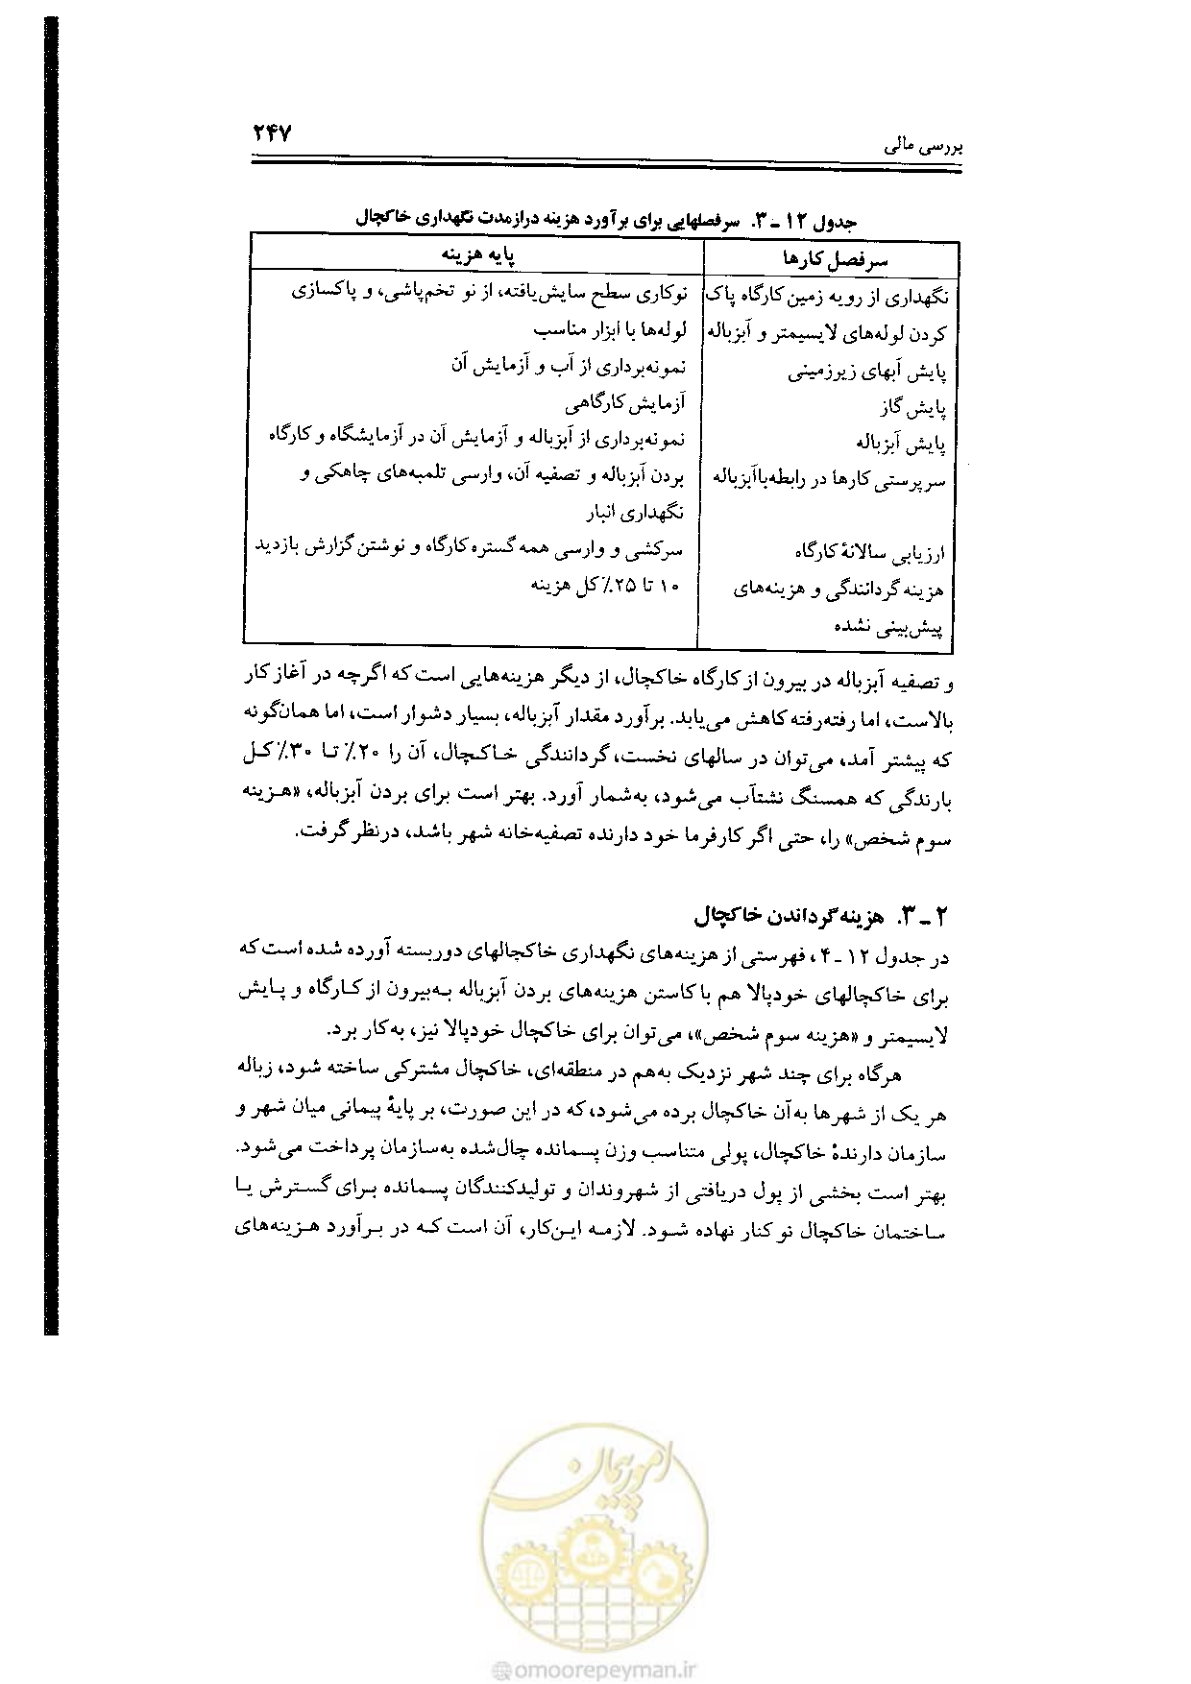 بررسی مالی ۲۴۷
جدول ۱۲ ـ ۳. سرفصلهایی برای برآورد هزینه درازمدت نگهداری خاکچال
سرفصل کارها پایه هزینه
نگهداری از رویه زمین کارگاه پاک نوکاری سطح سایش‌یافته، از نو تخم‌پاشی، و پاکسازی
کردن لوله‌های لایسیمتر و آبزباله لوله‌ها با ابزار مناسب
پایش آبهای زیرزمینی نمونه‌برداری از آب و آزمایش آن
پایش گاز آزمایش کارگاهی
پایش آبزباله نمونه‌برداری از آبزباله و آزمایش آن در آزمایشگاه و کارگاه
سرپرستی کارها در رابطه‌با‌آبزباله بردن آبزباله و تصفیه آن، وارسی تلمبه‌های چاهکی و
نگهداری انبار
ارزیابی سالانهٔ کارگاه سرکشی و وارسی همه گستره کارگاه و نوشتن گزارش بازدید
هزینه گردانندگی و هزینه‌های ۱۰ تا ۲۵٪ کل هزینه
پیش‌بینی نشده
و تصفیه آبزباله در بیرون از کارگاه خاکچال، از دیگر هزینه‌هایی است که اگرچه در آغاز کار
بالاست، اما رفته‌رفته کاهش می‌یابد. برآورد مقدار آبزباله، بسیار دشوار است، اما همان‌گونه
که پیشتر آمد، می‌توان در سالهای نخست، گردانندگی خاکچال، آن را ۲۰٪ تا ۳۰٪ کل
بارندگی که همسنگ نشتآب می‌شود، به‌شمار آورد. بهتر است برای بردن آبزباله، «هزینه
سوم شخص» را، حتی اگر کارفرما خود دارنده تصفیه‌خانه شهر باشد، درنظر گرفت.
۲ ـ ۳. هزینه گرداندن خاکچال
در جدول ۱۲ ـ ۴، فهرستی از هزینه‌های نگهداری خاکچالهای دوربسته آورده شده است که
برای خاکچالهای خودپالا هم با کاستن هزینه‌های بردن آبزباله به‌بیرون از کارگاه و پایش
لایسیمتر و «هزینه سوم شخص»، می‌توان برای خاکچال خودپالا نیز، به‌کار برد.
هرگاه برای چند شهر نزدیک به‌هم در منطقه‌ای، خاکچال مشترکی ساخته شود، زباله
هر یک از شهرها به‌آن خاکچال برده می‌شود، که در این صورت، بر پایهٔ پیمانی میان شهر و
سازمان دارندهٔ خاکچال، پولی متناسب وزن پسمانده چال‌شده به‌سازمان پرداخت می‌شود.
بهتر است بخشی از پول دریافتی از شهروندان و تولیدکنندگان پسمانده برای گسترش یا
ساختمان خاکچال نو کنار نهاده شود. لازمه این‌کار، آن است که در برآورد هزینه‌های
امور پیمان
@omoorepeyman.ir